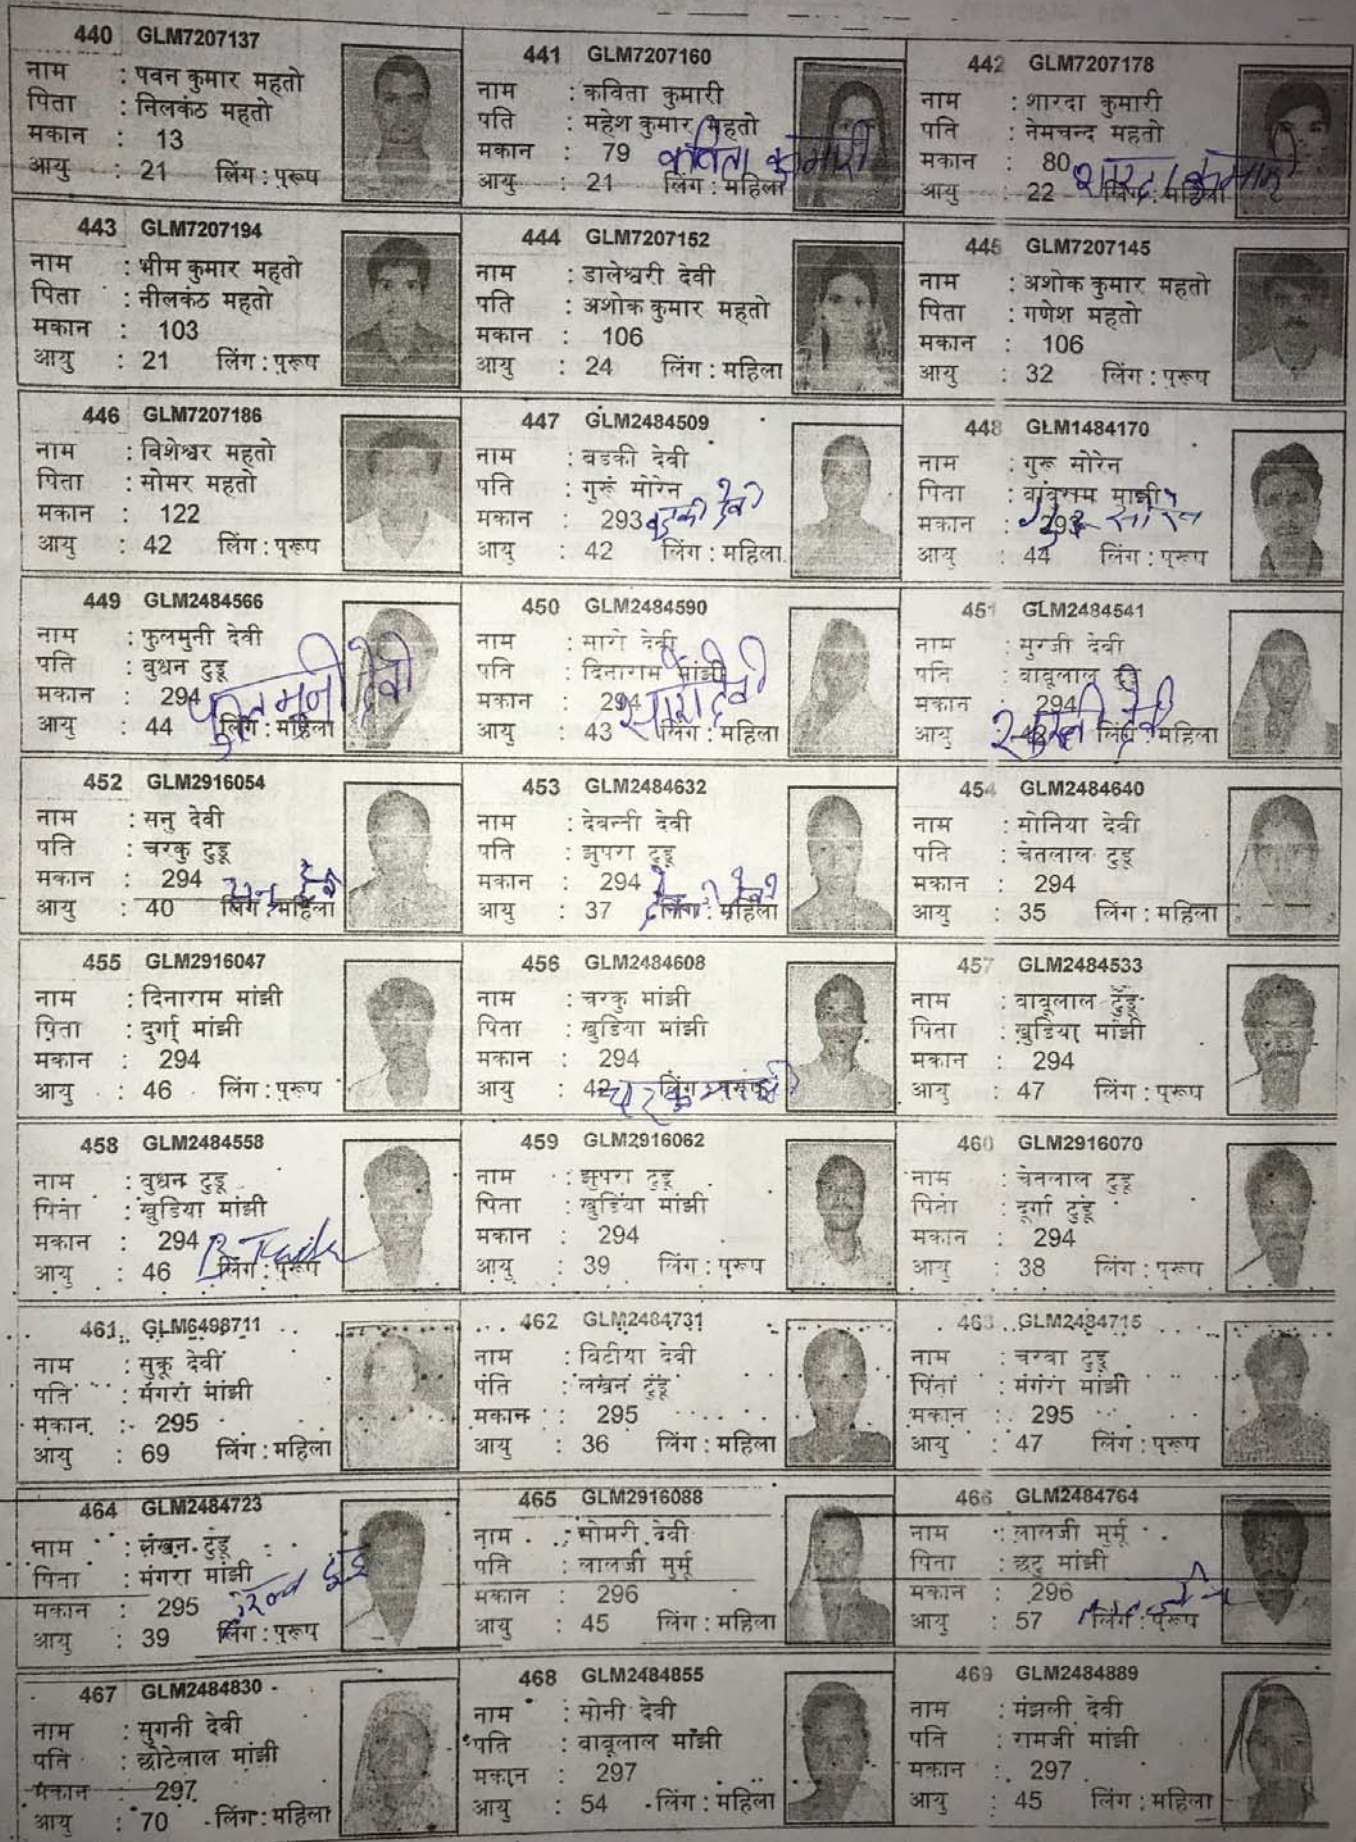 440 GLM7207137
नाम : पवन कुमार महतो
पिता : निलकंठ महतो
मकान : 13
आयु : 21 लिंग : पुरूप
441 GLM7207160
नाम : कविता कुमारी
पति : महेश कुमार महतो
मकान : 79 कविता कुमारी
आयु : 21 लिंग : महिला
442 GLM7207178
नाम : शारदा कुमारी
पति : नेमचन्द महतो
मकान : 80
आयु : 22 लिंग : महिला
443 GLM7207194
नाम : भीम कुमार महतो
पिता : नीलकंठ महतो
मकान : 103
आयु : 21 लिंग : पुरूप
444 GLM7207152
नाम : डालेश्वरी देवी
पति : अशोक कुमार महतो
मकान : 106
आयु : 24 लिंग : महिला
445 GLM7207145
नाम : अशोक कुमार महतो
पिता : गणेश महतो
मकान : 106
आयु : 32 लिंग : पुरूप
446 GLM7207186
नाम : विशेश्वर महतो
पिता : सोमर महतो
मकान : 122
आयु : 42 लिंग : पुरूप
447 GLM2484509
नाम : वडकी देवी
पति : गुरूं मोरेन
मकान : 293 बड़की देवी
आयु : 42 लिंग : महिला
448 GLM1484170
नाम : गुरू सोरेन
पिता : वावुराम माझी
मकान : 293
आयु : 44 लिंग : पुरूप
449 GLM2484566
नाम : फुलमुनी देवी
पति : वुधन टुडू
मकान : 294 फुलमुनी देवी
आयु : 44 लिंग : महिला
450 GLM2484590
नाम : सारो देवी
पति : दिनाराम मांझी
मकान : 294 सारोदेवी
आयु : 43 लिंग : महिला
451 GLM2484541
नाम : सुरजी देवी
पति : वावूलाल टुडू
मकान : 294
आयु : 42 लिंग : महिला
452 GLM2916054
नाम : सनु देवी
पति : चरकु टुडू
मकान : 294
आयु : 40 लिंग : महिला
453 GLM2484632
नाम : देवन्ती देवी
पति : झुपरा टुडू
मकान : 294
आयु : 37 लिंग : महिला
454 GLM2484640
नाम : मोनिया देवी
पति : चेतलाल टुडू
मकान : 294
आयु : 35 लिंग : महिला
455 GLM2916047
नाम : दिनाराम मांझी
पिता : दुर्गा मांझी
मकान : 294
आयु : 46 लिंग : पुरूप
456 GLM2484608
नाम : चरकु मांझी
पिता : खुडिया मांझी
मकान : 294
आयु : 42 लिंग : पुरूप
457 GLM2484533
नाम : वावूलाल टुडू
पिता : खुडिया मांझी
मकान : 294
आयु : 47 लिंग : पुरूप
458 GLM2484558
नाम : वुधन टुडू
पिता : खुडिया मांझी
मकान : 294
आयु : 46 लिंग : पुरूप
459 GLM2916062
नाम : झुपरा टुडू
पिता : खुडिया मांझी
मकान : 294
आयु : 39 लिंग : पुरूप
460 GLM2916070
नाम : चेतलाल टुडू
पिता : दूर्गा टुडूं
मकान : 294
आयु : 38 लिंग : पुरूप
461 GLM6498711
नाम : सुकू देवी
पति : मंगरा मांझी
मकान : 295
आयु : 69 लिंग : महिला
462 GLM2484731
नाम : विटीया देवी
पति : लखन टुडूं
मकान : 295
आयु : 36 लिंग : महिला
463 GLM2484715
नाम : चरवा टुडू
पिता : मंगरा मांझी
मकान : 295
आयु : 47 लिंग : पुरूप
464 GLM2484723
नाम : लखन टुडू
पिता : मंगरा मांझी
मकान : 295
आयु : 39 लिंग : पुरूप
465 GLM2916088
नाम : सोमरी देवी
पति : लालजी मुर्मू
मकान : 296
आयु : 45 लिंग : महिला
466 GLM2484764
नाम : लालजी मुर्मू
पिता : छटु मांझी
मकान : 296
आयु : 57 लिंग : पुरूप
467 GLM2484830
नाम : सुगनी देवी
पति : छोटेलाल मांझी
मकान : 297
आयु : 70 लिंग : महिला
468 GLM2484855
नाम : सोनी देवी
पति : वावूलाल मांझी
मकान : 297
आयु : 54 लिंग : महिला
469 GLM2484889
नाम : मंझली देवी
पति : रामजी मांझी
मकान : 297
आयु : 45 लिंग : महिला